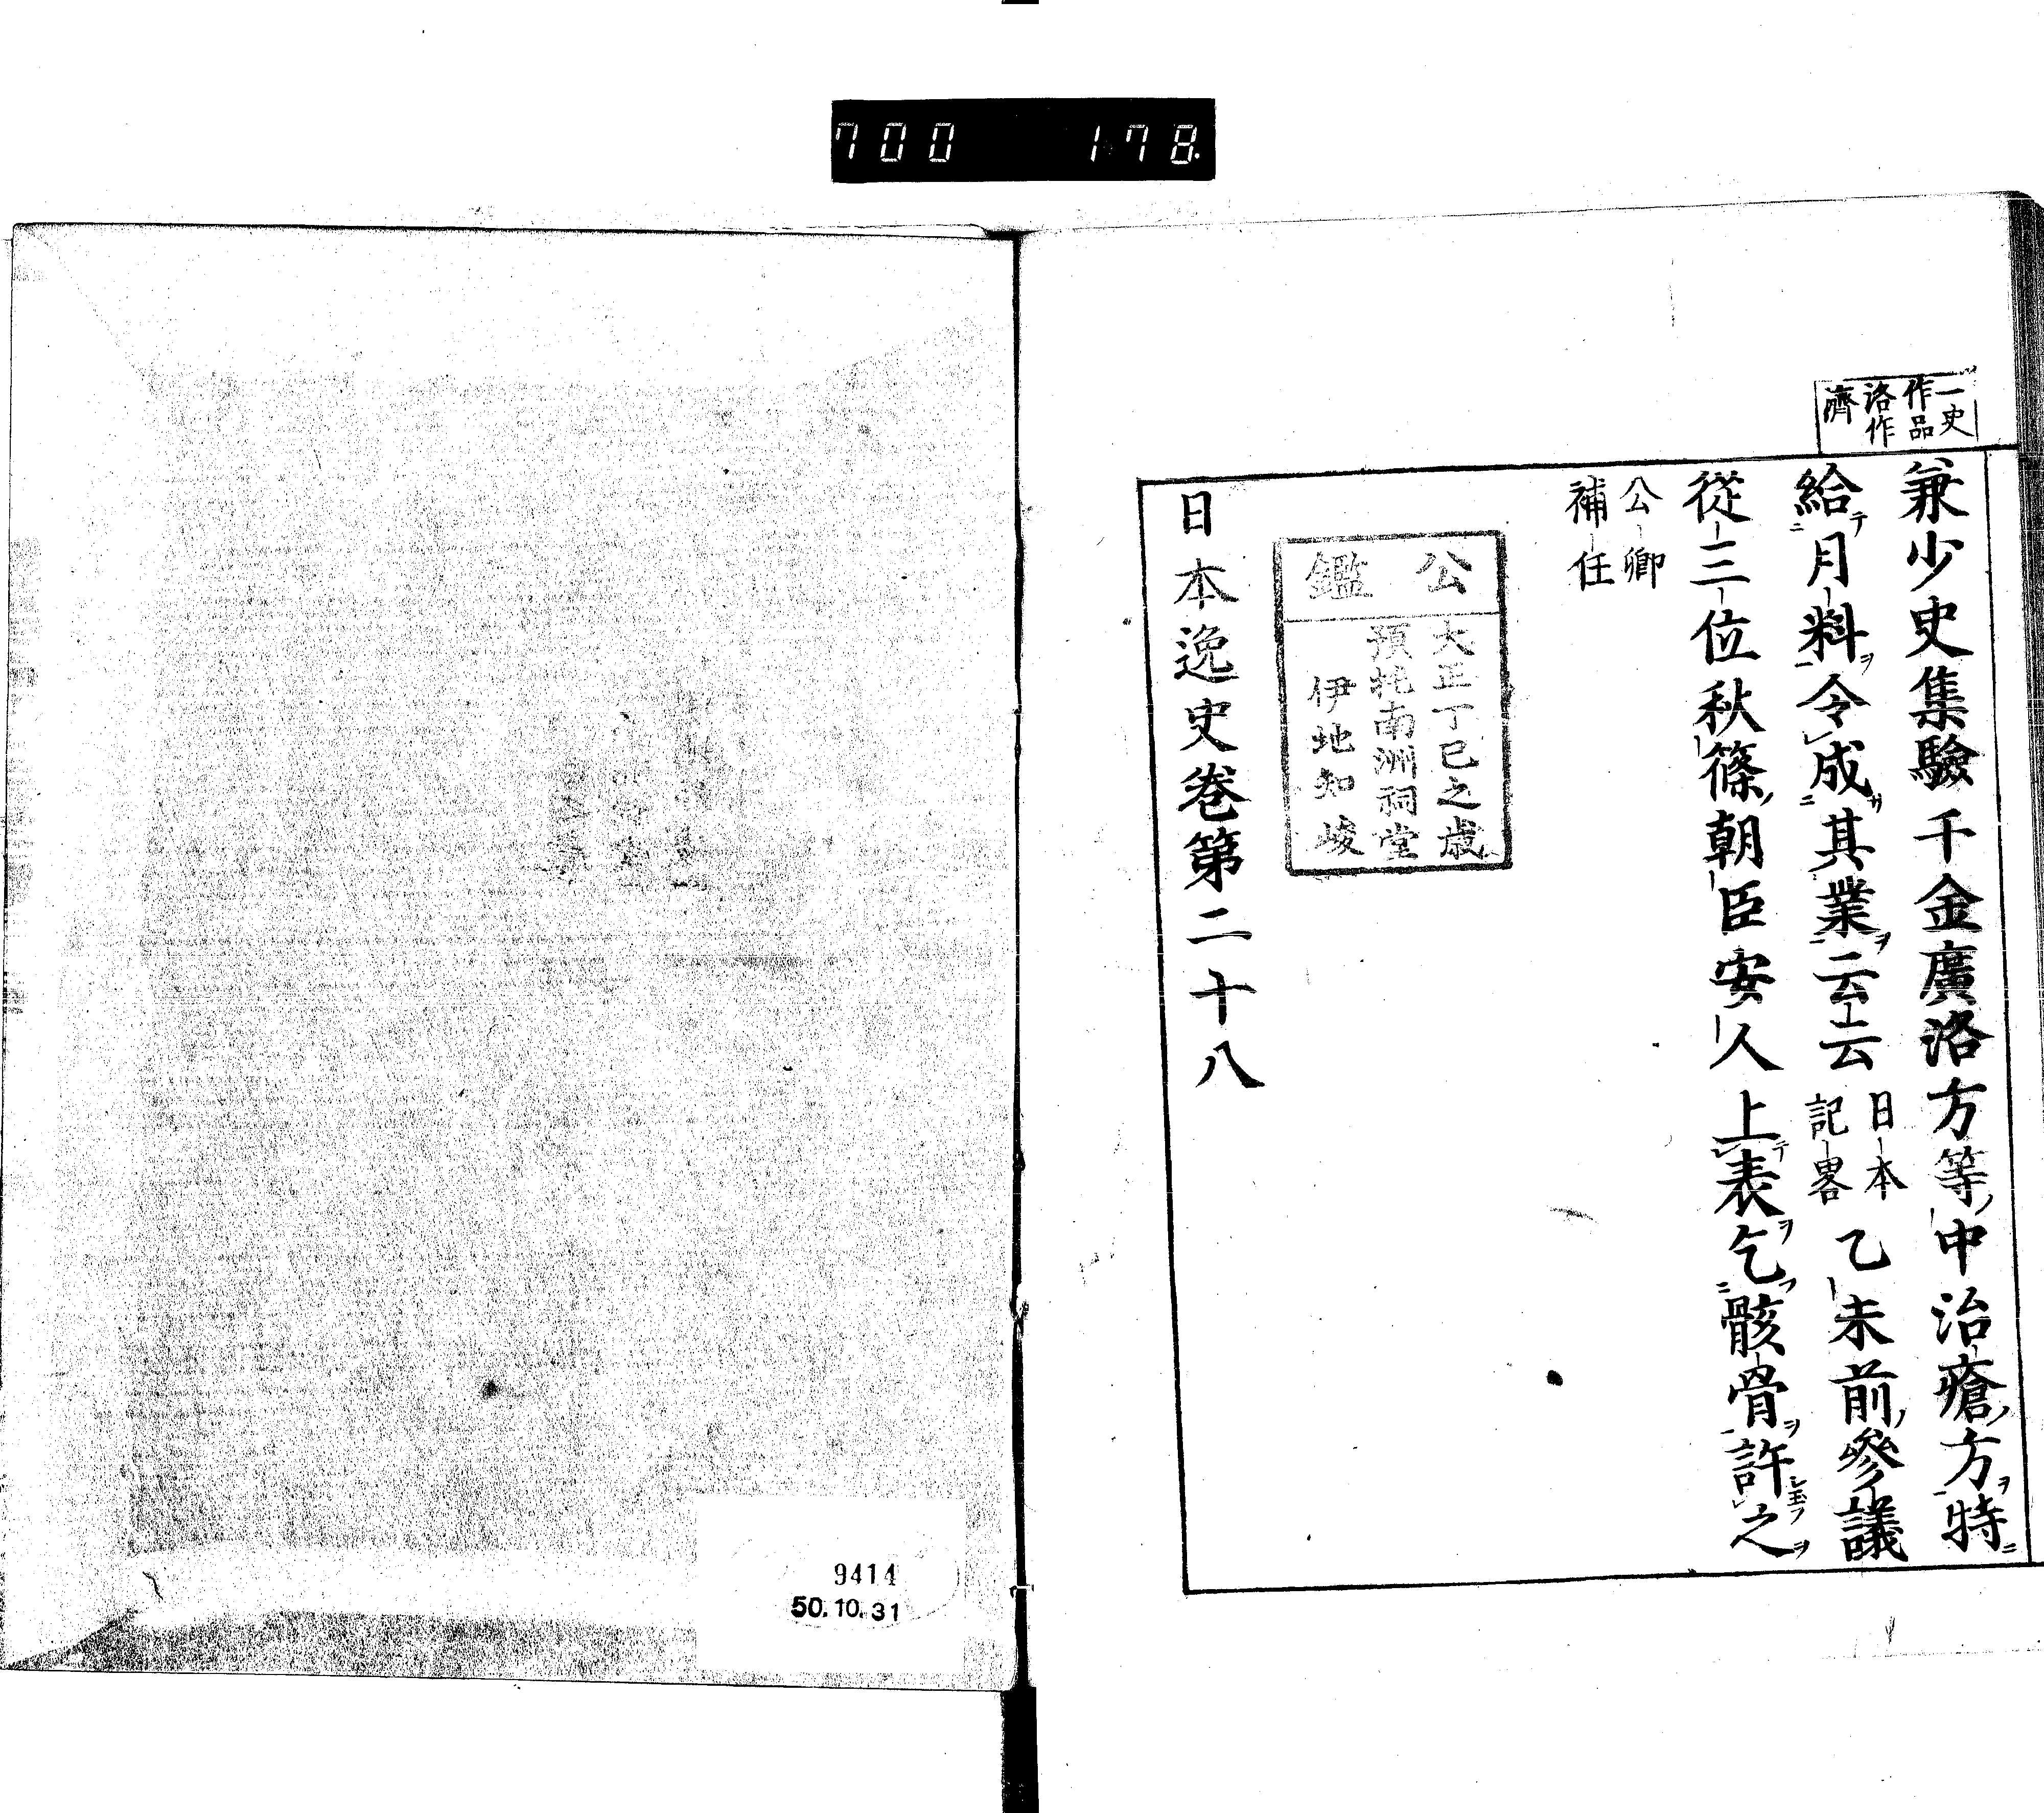 700 178.
一史
作品
洛作
濟
兼少史集驗千金廣洛方等ノ中治瘡ノ方ヲ特ニ
給テ月料ヲ令成其業ヲ云云日本記畧乙未前ノ參議
從三位秋篠ノ朝臣安人上テ表ヲ乞フ骸骨ヲ許シ玉フ之ヲ
公卿
補任
公鑑
大正丁巳之歳
預托南洲祠堂
伊地知峻
日本逸史卷第二十八
9414
50.10.31